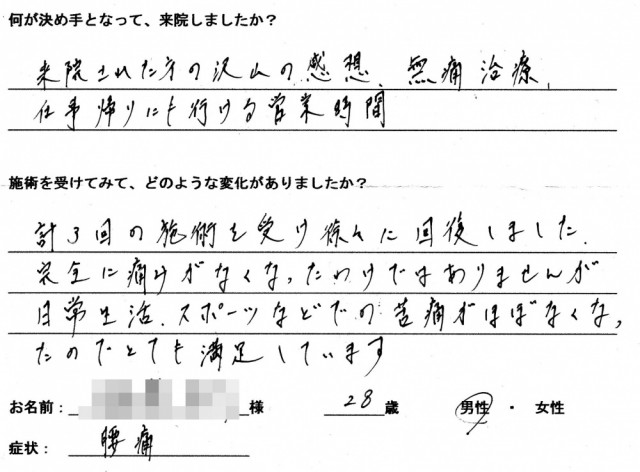 何が決め手となって、来院しましたか？
来院された方の沢山の感想、無痛治療、
仕事帰りにも行ける営業時間
施術を受けてみて、どのような変化がありましたか？
計3回の施術を受け徐々に回復しました.
完全に痛みがなくなったわけではありませんが
日常生活、スポーツなどでの苦痛がほぼなくなっ
たのでとても満足しています
お名前： 様 28 歳 男性 ・ 女性
症状： 腰痛